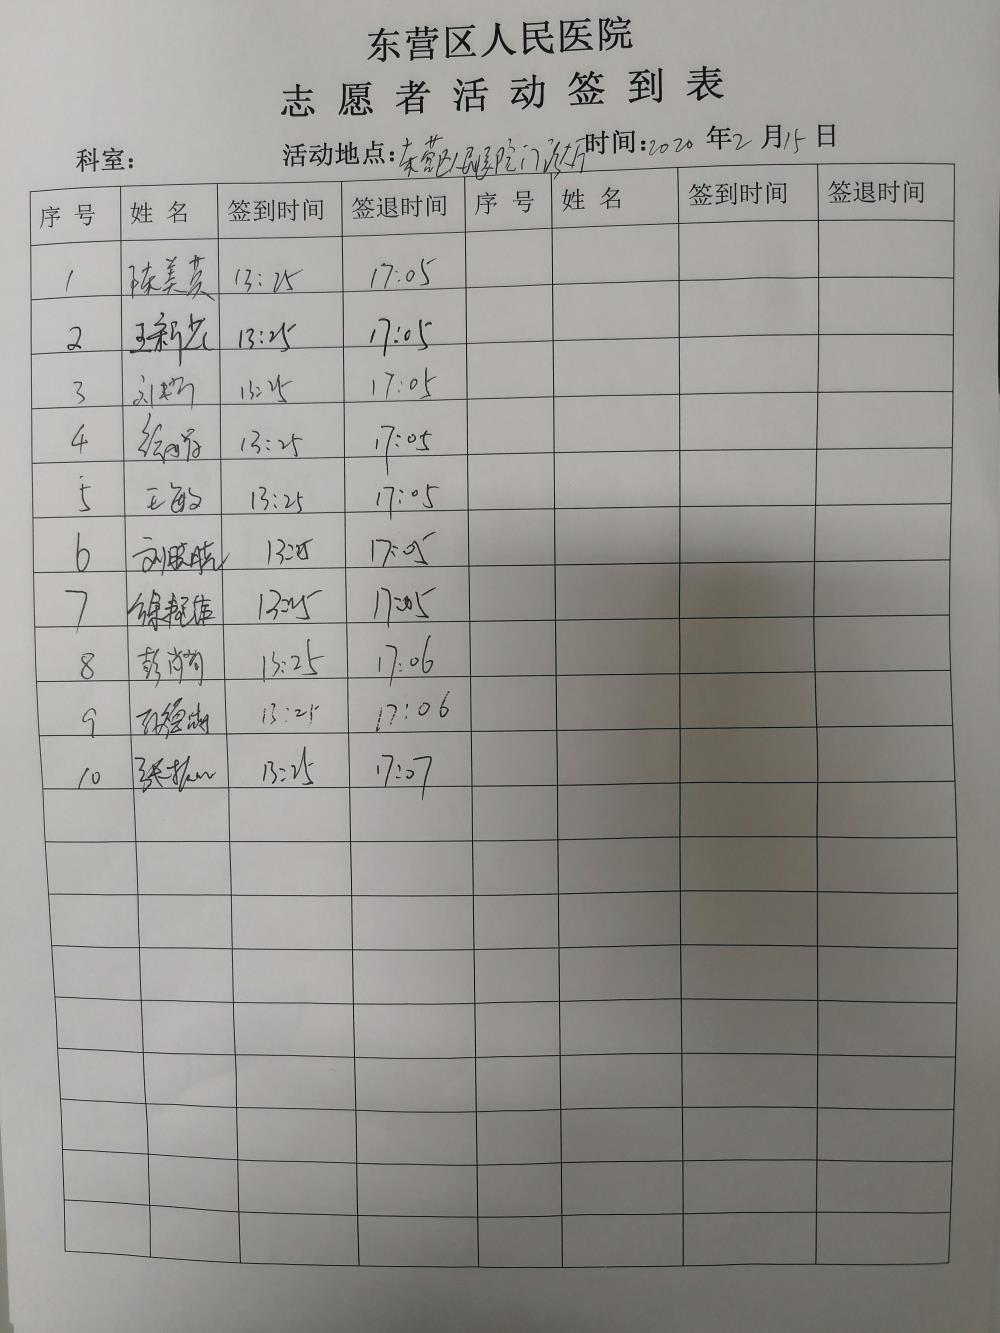 东营区人民医院
志愿者活动签到表
科室： 活动地点：东营区人民医院门诊大厅 时间：2020 年 2 月 15 日
序号 姓名 签到时间 签退时间 序号 姓名 签到时间 签退时间
1 陈美英 13:25 17:05
2 13:25 17:05
3 13:25 17:05
4 13:25 17:05
5 王敏 13:25 17:05
6 刘晓晓 13:25 17:05
7 13:25 17:05
8 彭尚尚 13:25 17:06
9 13:25 17:06
10 13:25 17:07